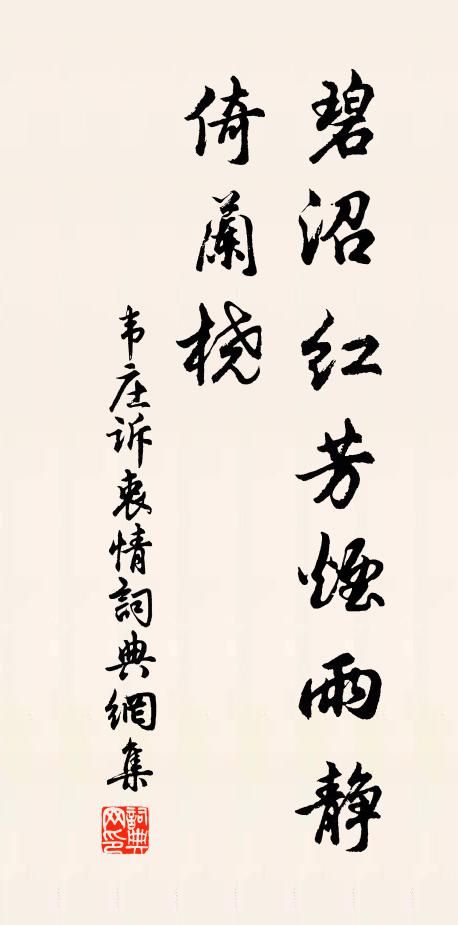 碧沼红芳煙雨静
倚蘭桡
韦庄诉衷情詞典網集
詞典网印